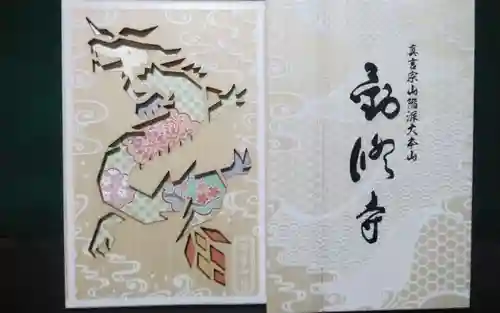 真言宗山階派大本山
勧修寺